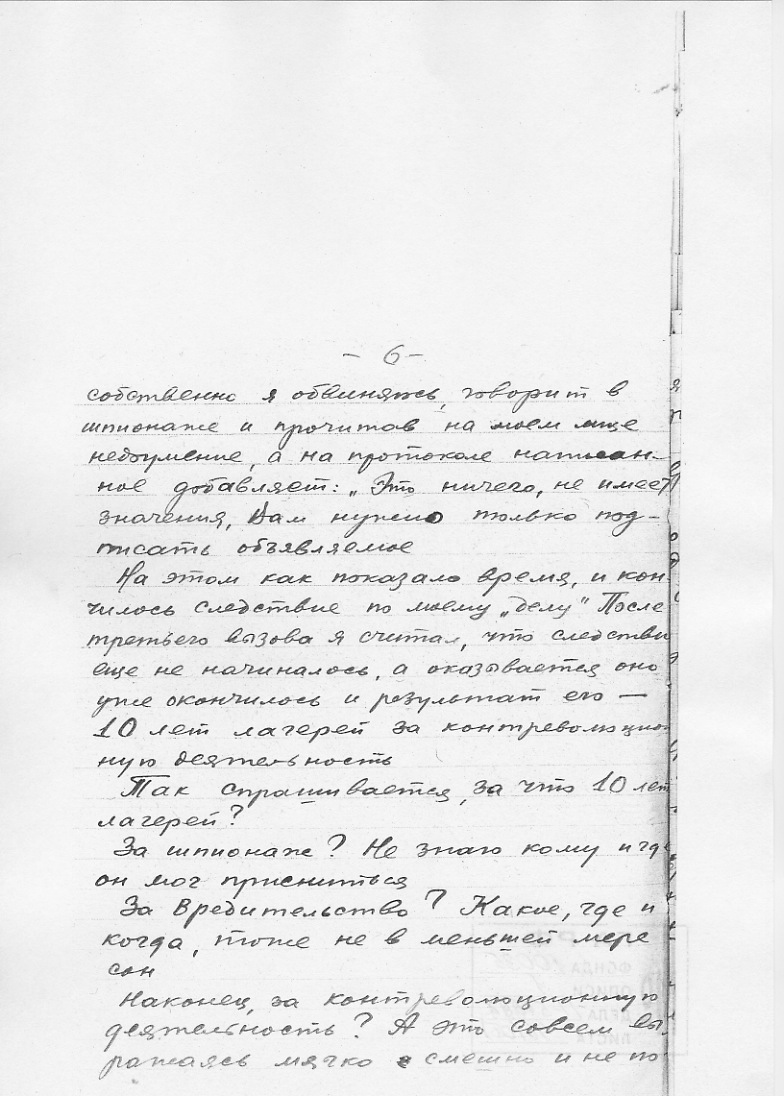 - 6 -
собственно я обвиняюсь, говорит в
шпионаже и прочитав на моем лице
недоумение, а на протоколе написан-
ное добавляет: „Это ничего, не имеет
значения, Вам нужно только под-
писать объявляемое
На этом как показало время, и кон-
чилось следствие по моему „делу" После
третьего вызова я считал, что следстви
еще не начиналось, а оказывается оно
уже окончилось и результат его —
10 лет лагерей за контреволюцион
ную деятельность
Так спрашивается, за что 10 лет
лагерей?
За шпионаж? Не знаю кому и где
он мог присниться
За Вредительство? Какое, где и
когда, тоже не в меньшей мере
сон
Наконец, за контреволюционную
деятельность? А это совсем вы-
ражаясь мягко смешно и не по-
ФОНДА
ОПИСИ
ДЕЛА
ЛИСТА